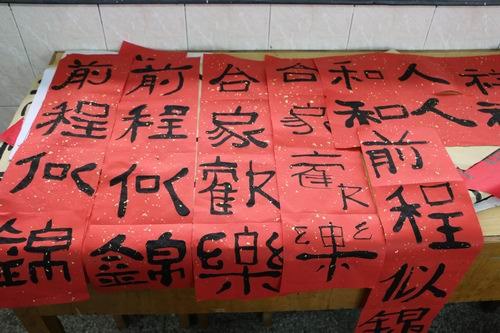 前程似錦
前程似錦
合家歡樂
合家歡樂
人和
人和
前程似錦